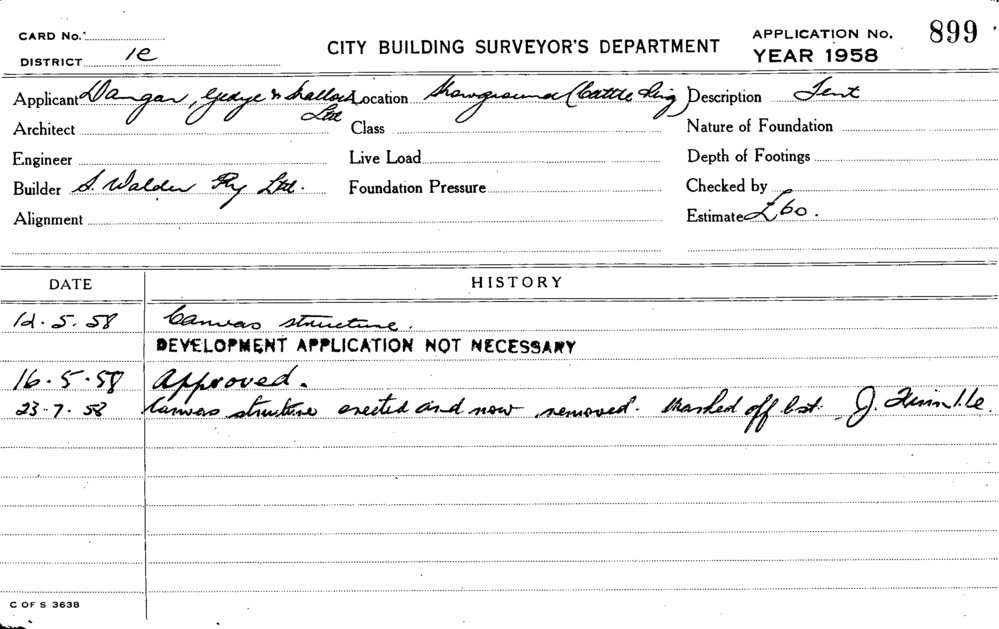 CARD No.
DISTRICT 1e
CITY BUILDING SURVEYOR'S DEPARTMENT
APPLICATION No. 899
YEAR 1958
Applicant Dangar, Gedye & Malloch Ltd Location Showground (Cattle Ring) Description Tent
Architect Class Nature of Foundation
Engineer Live Load Depth of Footings
Builder S. Walder Pty Ltd. Foundation Pressure Checked by
Alignment Estimate £60.
DATE HISTORY
12.5.58 Canvas structure.
DEVELOPMENT APPLICATION NOT NECESSARY
16.5.58 Approved.
23.7.58 Canvas structure erected and now removed. Marked off list. J.
C OF S 3638